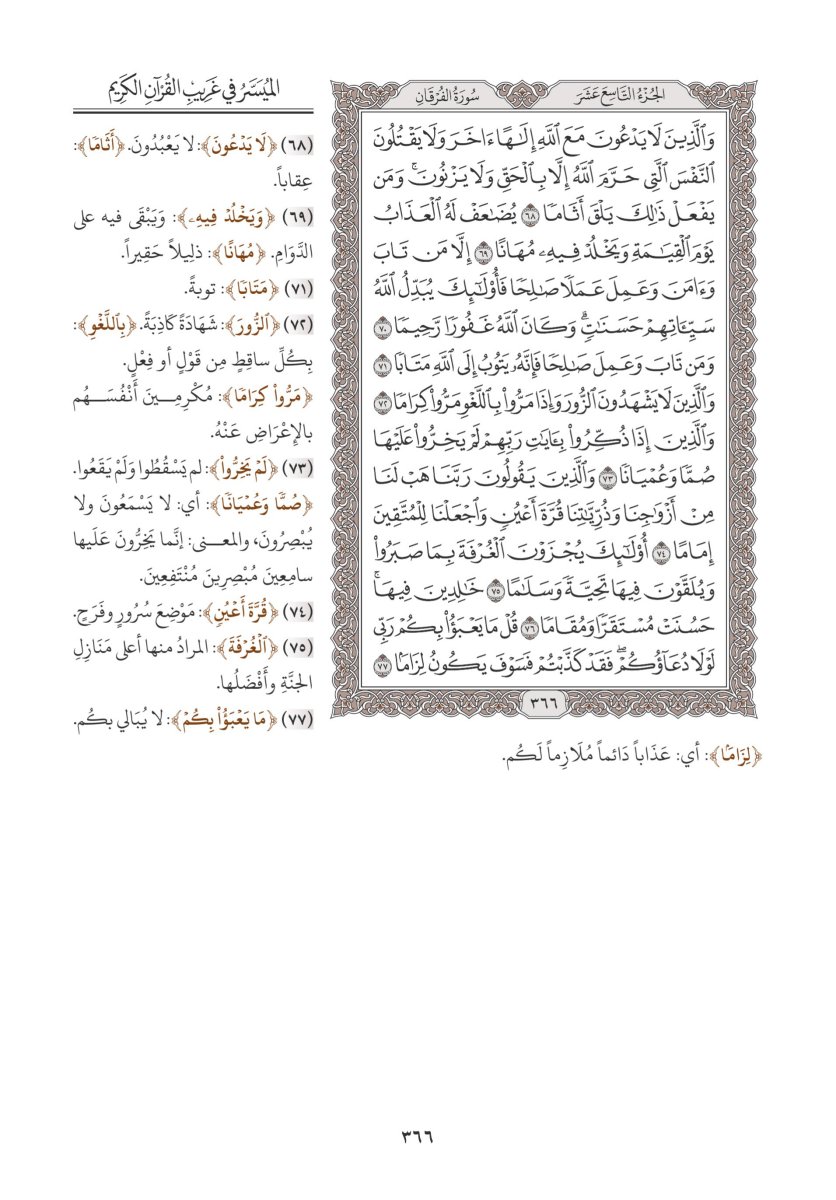 الجُزْءُ التَّاسِعَ عَشَرَ
سُورَةُ الفُرْقَانِ
وَٱلَّذِينَ لَا يَدْعُونَ مَعَ ٱللَّهِ إِلَٰهًا ءَاخَرَ وَلَا يَقْتُلُونَ
ٱلنَّفْسَ ٱلَّتِي حَرَّمَ ٱللَّهُ إِلَّا بِٱلْحَقِّ وَلَا يَزْنُونَ ۚ وَمَن
يَفْعَلْ ذَٰلِكَ يَلْقَ أَثَامًا ٦٨ يُضَٰعَفْ لَهُ ٱلْعَذَابُ
يَوْمَ ٱلْقِيَٰمَةِ وَيَخْلُدْ فِيهِۦ مُهَانًا ٦٩ إِلَّا مَن تَابَ
وَءَامَنَ وَعَمِلَ عَمَلًا صَٰلِحًا فَأُو۟لَٰٓئِكَ يُبَدِّلُ ٱللَّهُ
سَيِّـَٔاتِهِمْ حَسَنَٰتٍ ۗ وَكَانَ ٱللَّهُ غَفُورًا رَّحِيمًا ٧٠
وَمَن تَابَ وَعَمِلَ صَٰلِحًا فَإِنَّهُۥ يَتُوبُ إِلَى ٱللَّهِ مَتَابًا ٧١
وَٱلَّذِينَ لَا يَشْهَدُونَ ٱلزُّورَ وَإِذَا مَرُّوا۟ بِٱللَّغْوِ مَرُّوا۟ كِرَامًا ٧٢
وَٱلَّذِينَ إِذَا ذُكِّرُوا۟ بِـَٔايَٰتِ رَبِّهِمْ لَمْ يَخِرُّوا۟ عَلَيْهَا
صُمًّا وَعُمْيَانًا ٧٣ وَٱلَّذِينَ يَقُولُونَ رَبَّنَا هَبْ لَنَا
مِنْ أَزْوَٰجِنَا وَذُرِّيَّٰتِنَا قُرَّةَ أَعْيُنٍ وَٱجْعَلْنَا لِلْمُتَّقِينَ
إِمَامًا ٧٤ أُو۟لَٰٓئِكَ يُجْزَوْنَ ٱلْغُرْفَةَ بِمَا صَبَرُوا۟
وَيُلَقَّوْنَ فِيهَا تَحِيَّةً وَسَلَٰمًا ٧٥ خَٰلِدِينَ فِيهَا ۚ
حَسُنَتْ مُسْتَقَرًّا وَمُقَامًا ٧٦ قُلْ مَا يَعْبَؤُا۟ بِكُمْ رَبِّي
لَوْلَا دُعَآؤُكُمْ ۖ فَقَدْ كَذَّبْتُمْ فَسَوْفَ يَكُونُ لِزَامًۢا ٧٧
٣٦٦
المُيَسَّرُ في غَرِيبِ القُرْآنِ الكَرِيمِ
(٦٨) ﴿لَا يَدْعُونَ﴾: لا يَعْبُدُونَ. ﴿أَثَامًا﴾:
عِقاباً.
(٦٩) ﴿وَيَخْلُدْ فِيهِۦ﴾: وَيَبْقَى فيه على
الدَّوَامِ. ﴿مُهَانًا﴾: ذليلاً حَقِيراً.
(٧١) ﴿مَتَابًا﴾: توبةً.
(٧٢) ﴿ٱلزُّورَ﴾: شَهَادَةً كَاذِبَةً. ﴿بِٱللَّغْوِ﴾:
بِكُلِّ ساقِطٍ مِن قَوْلٍ أو فِعْلٍ.
﴿مَرُّوا۟ كِرَامًا﴾: مُكْرِمِينَ أَنْفُسَهُم
بالإِعْرَاضِ عَنْهُ.
(٧٣) ﴿لَمْ يَخِرُّوا۟﴾: لم يَسْقُطُوا وَلَمْ يَقَعُوا.
﴿صُمًّا وَعُمْيَانًا﴾: أي: لا يَسْمَعُونَ ولا
يُبْصِرُونَ، والمعنى: إنَّما يَخِرُّونَ عَلَيها
سامِعِينَ مُبْصِرِينَ مُنْتَفِعِينَ.
(٧٤) ﴿قُرَّةَ أَعْيُنٍ﴾: مَوْضِعَ سُرُورٍ وفَرَحٍ.
(٧٥) ﴿ٱلْغُرْفَةَ﴾: المرادُ منها أعلى مَنَازِلِ
الجنَّةِ وأَفْضَلُها.
(٧٧) ﴿مَا يَعْبَؤُا۟ بِكُمْ﴾: لا يُبَالي بكُم.
﴿لِزَامًۢا﴾: أي: عَذَاباً دَائماً مُلَازِماً لَكُم.
٣٦٦